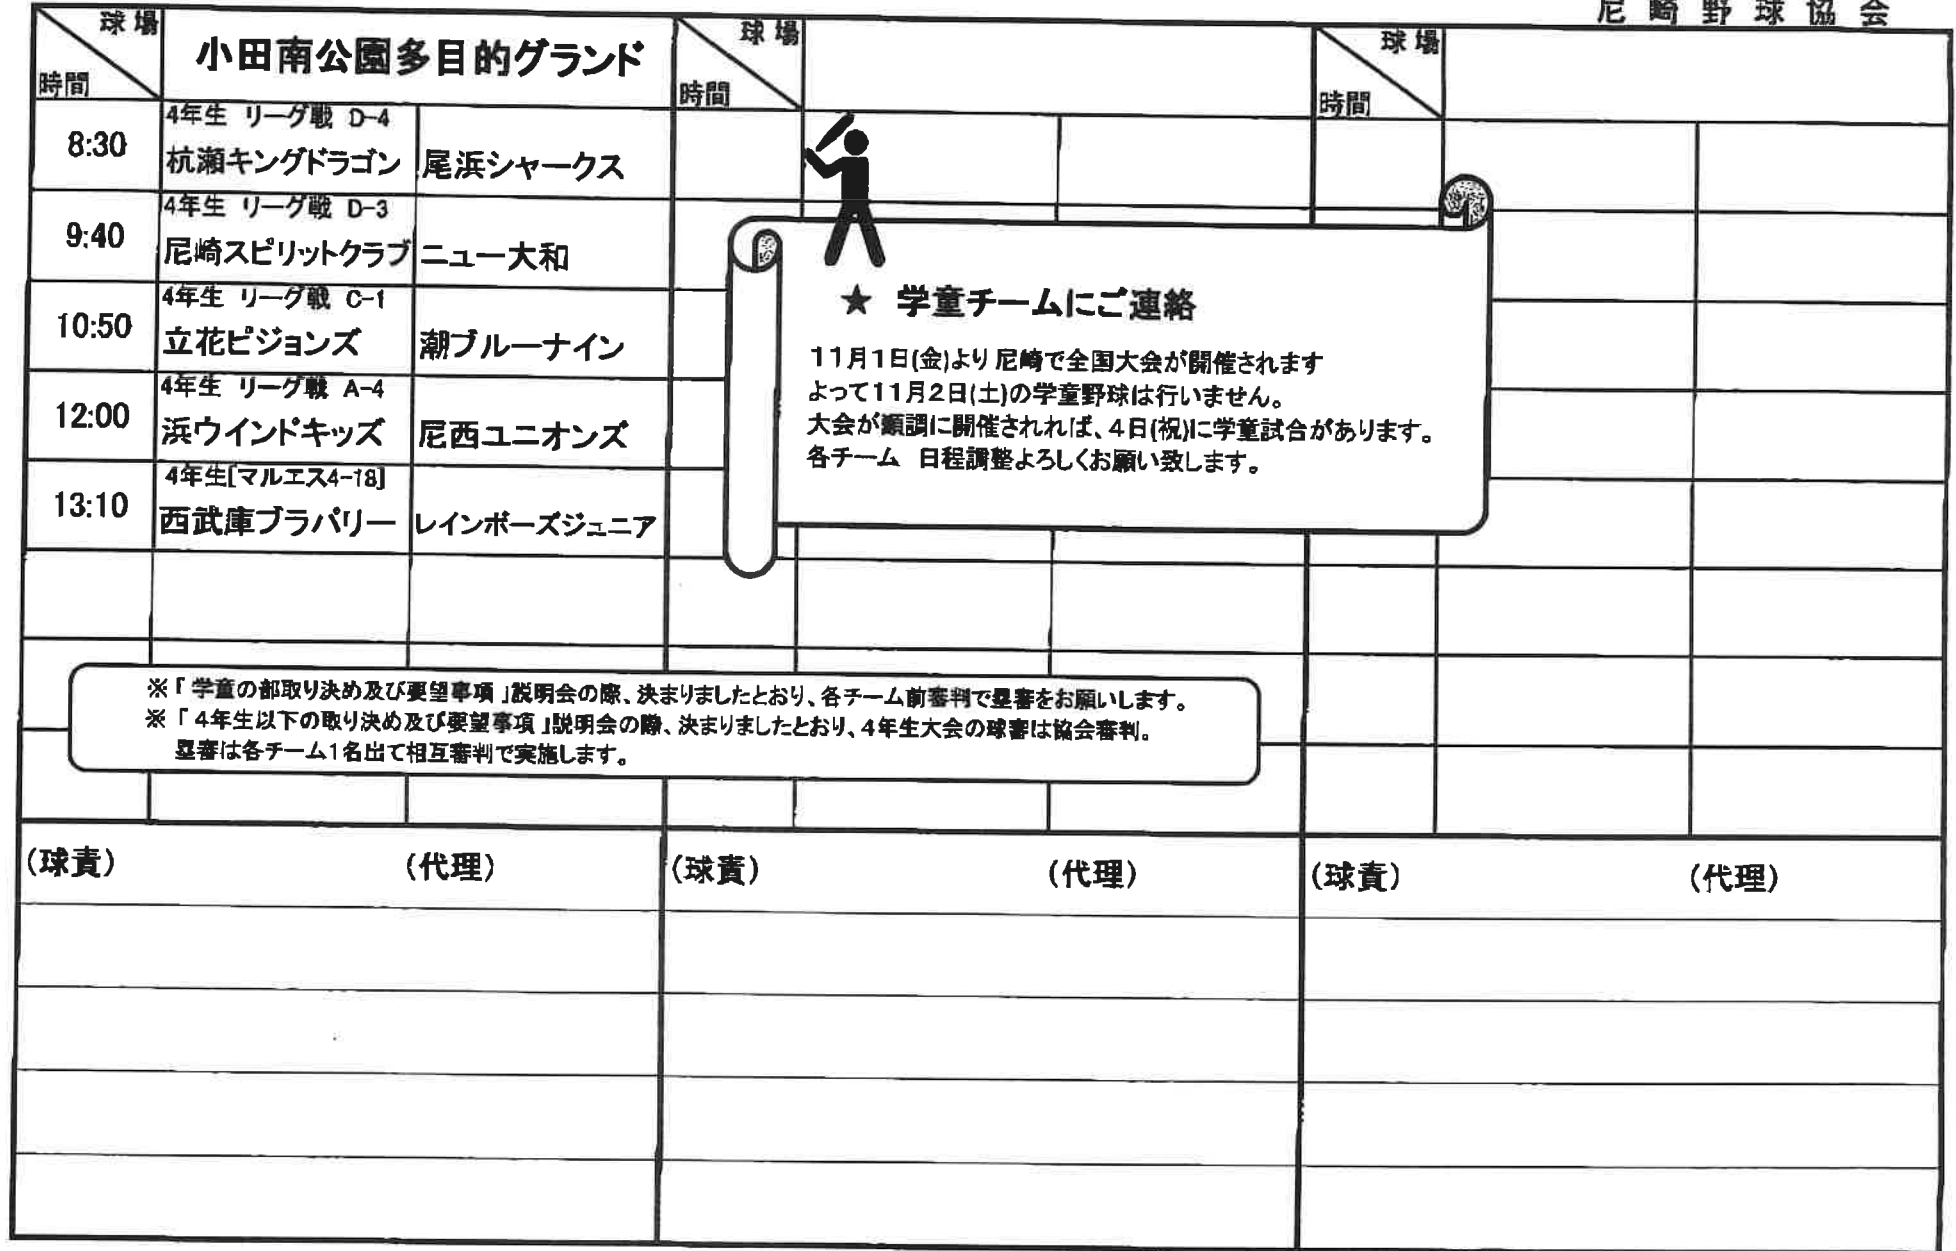 尼崎野球協会
球場
時間
小田南公園多目的グランド
球場
時間
球場
時間
8:30
4年生 リーグ戦 D-4
杭瀬キングドラゴン 尾浜シャークス
9:40
4年生 リーグ戦 D-3
尼崎スピリットクラブ ニュー大和
10:50
4年生 リーグ戦 C-1
立花ピジョンズ 潮ブルーナイン
12:00
4年生 リーグ戦 A-4
浜ウインドキッズ 尼西ユニオンズ
13:10
4年生[マルエス4-18]
西武庫ブラパリー レインボーズジュニア
★ 学童チームにご連絡
11月1日(金)より尼崎で全国大会が開催されます
よって11月2日(土)の学童野球は行いません。
大会が順調に開催されれば、4日(祝)に学童試合があります。
各チーム 日程調整よろしくお願い致します。
※「 学童の部取り決め及び要望事項 」説明会の際、決まりましたとおり、各チーム前審判で塁審をお願いします。
※「 4年生以下の取り決め及び要望事項 」説明会の際、決まりましたとおり、4年生大会の球審は協会審判。
塁審は各チーム1名出て相互審判で実施します。
(球責) (代理) (球責) (代理) (球責) (代理)